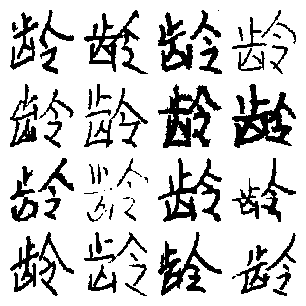 龄龄龄龄
龄龄龄龄
龄龄龄龄
龄龄龄龄